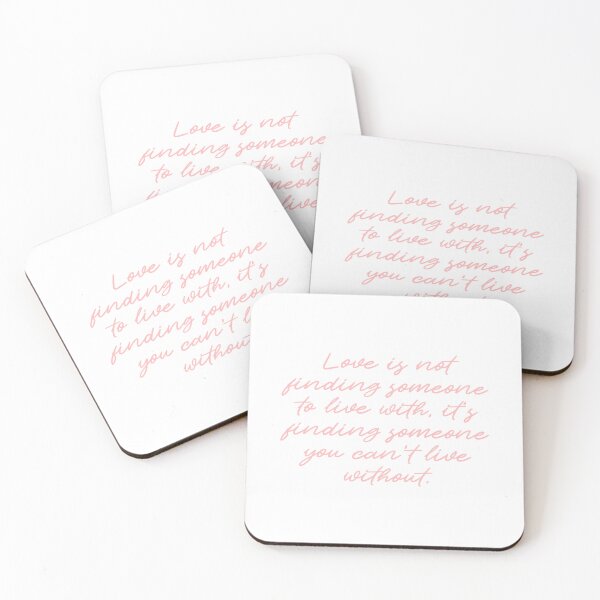 Love is not
finding someone
to live with, it's
live
Love is not
finding someone
to live with, it's
finding someone
you can't live
Love is not
finding someone
to live with, it's
finding someone
you can't
without
Love is not
finding someone
to live with, it's
finding someone
you can't live
without.